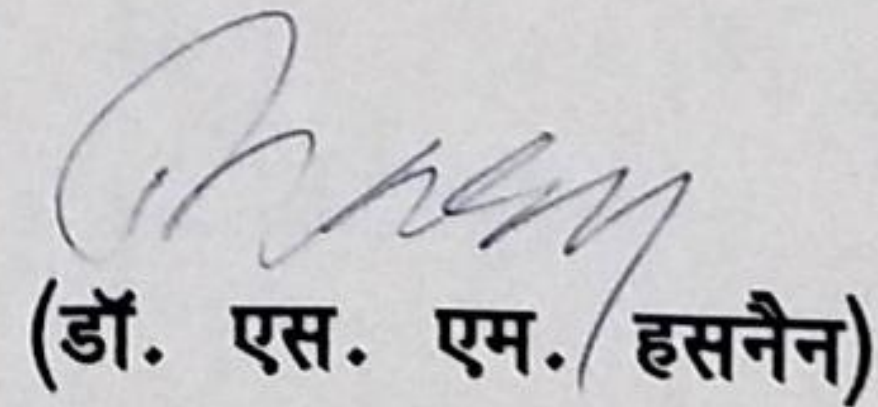 (डॉ. एस. एम. हसनैन)